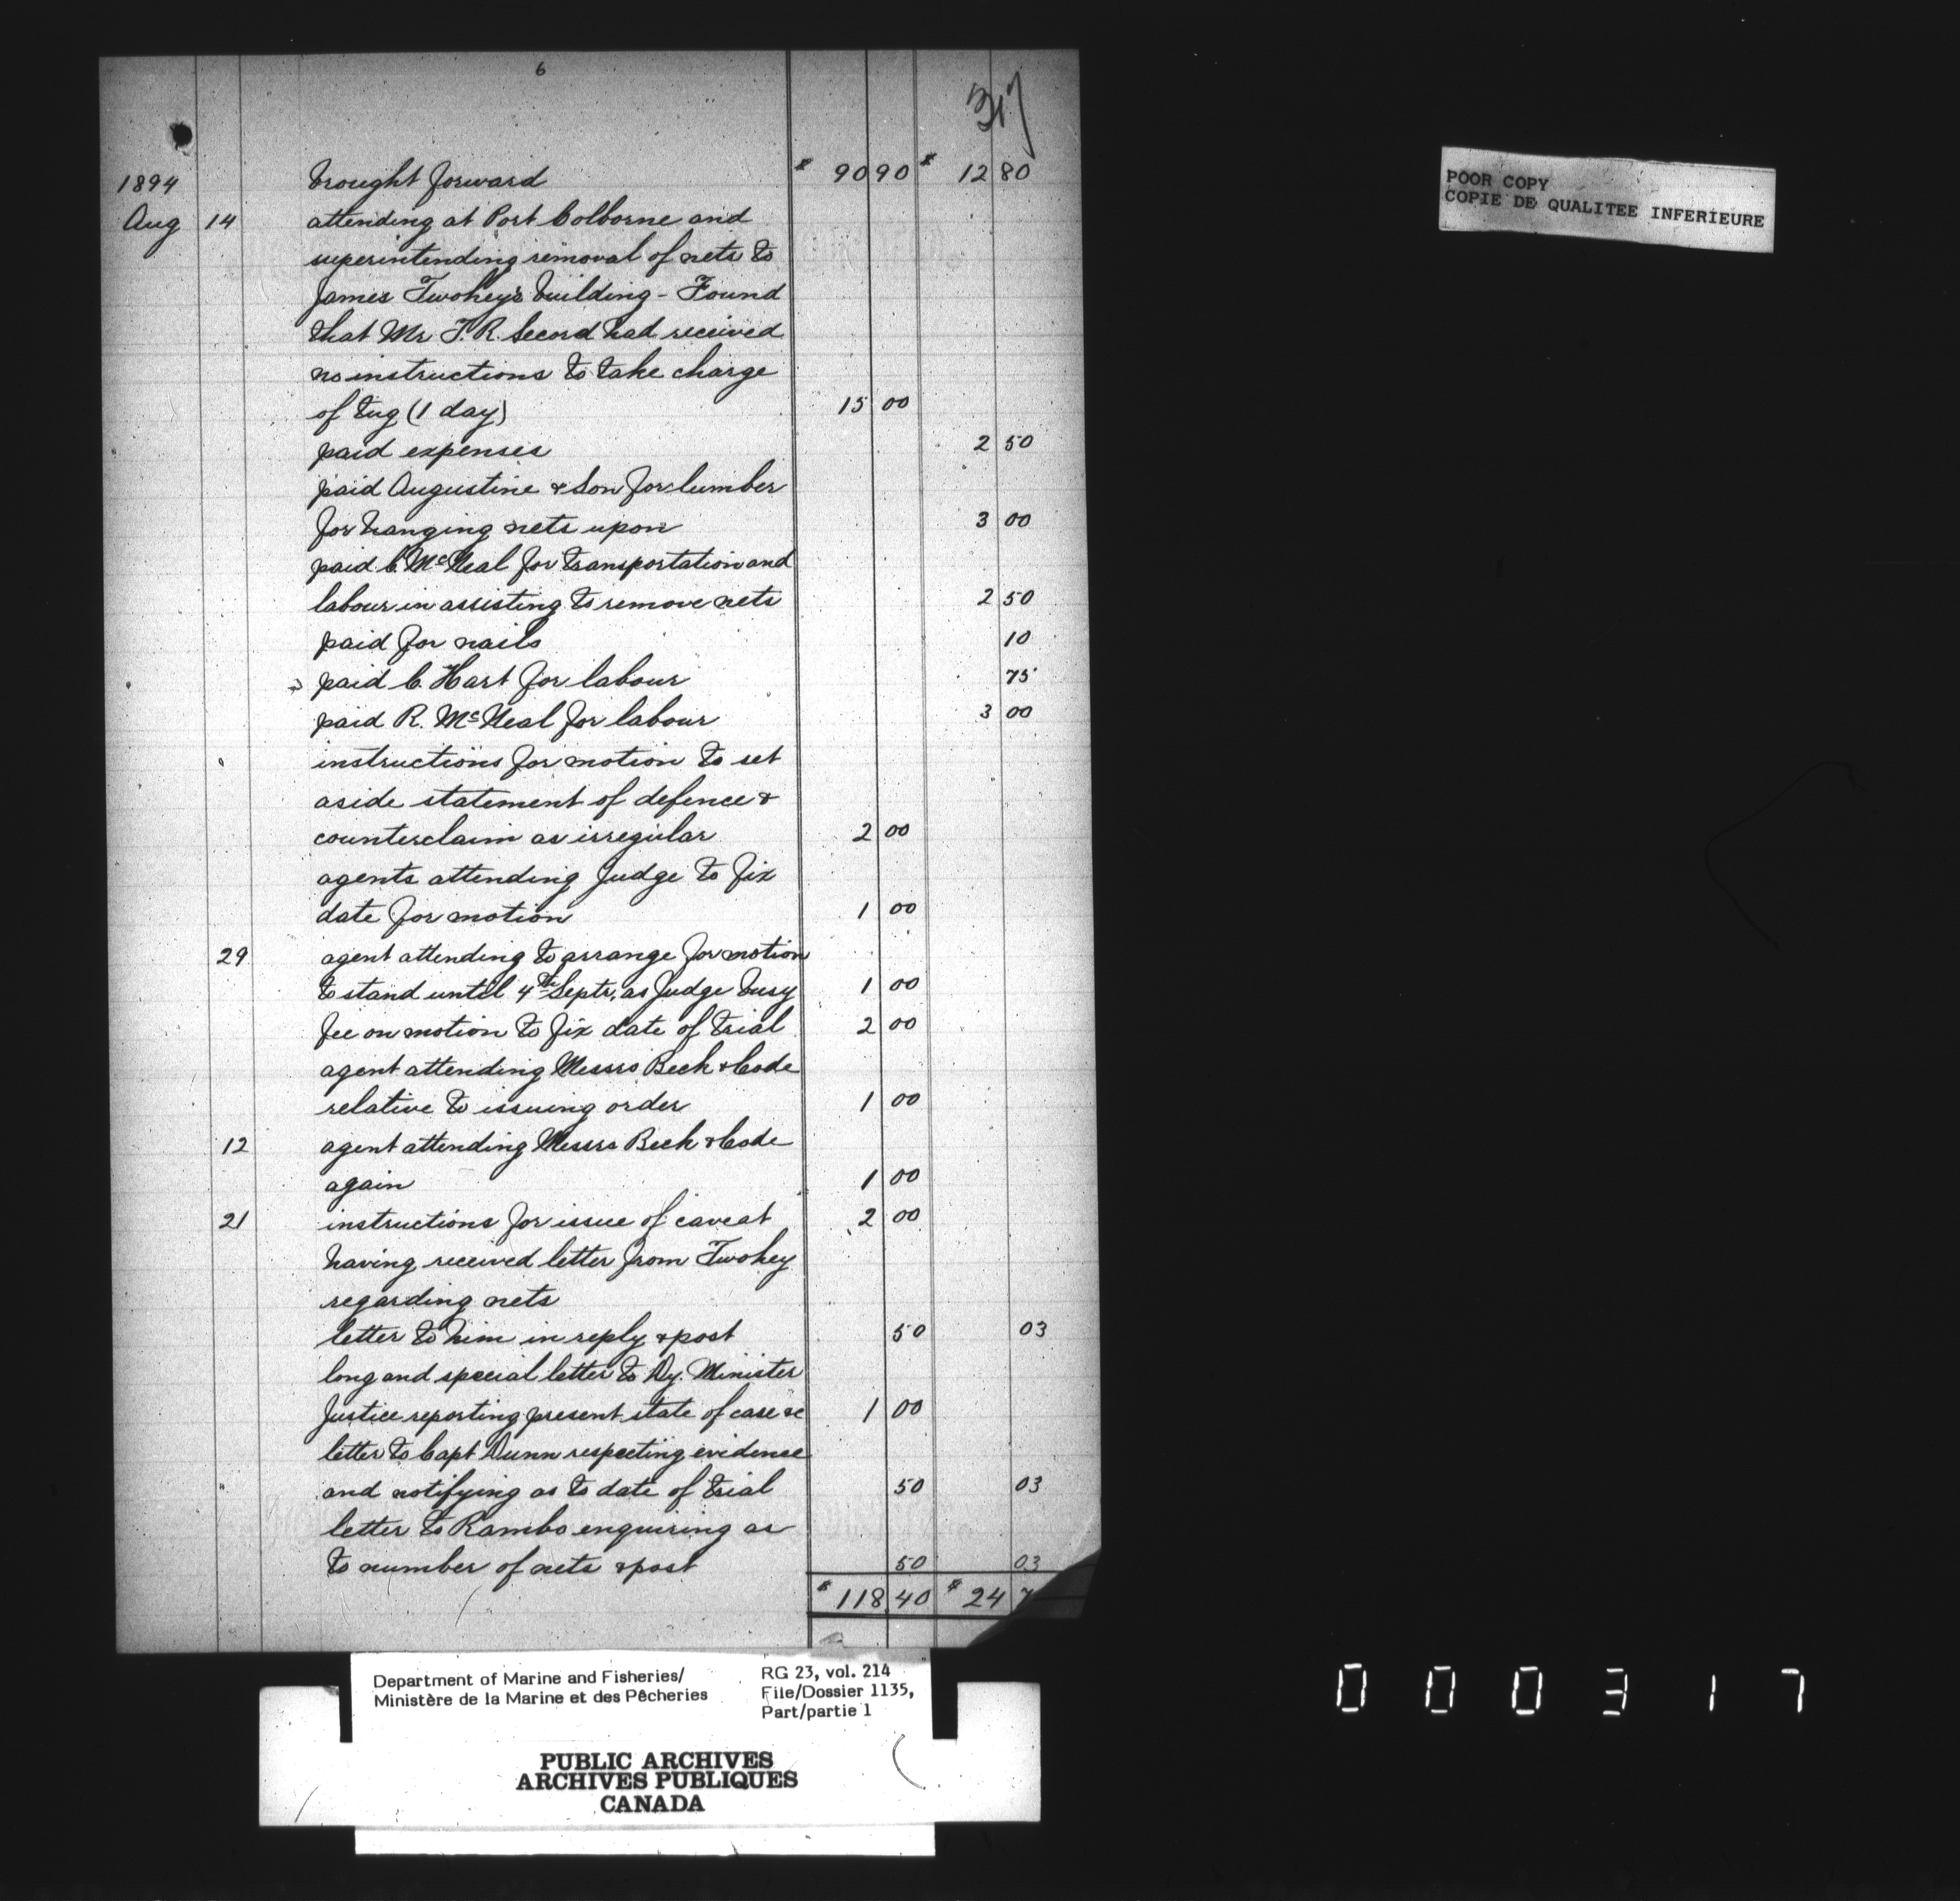 6
317
1894 brought forward $ 90 90 $ 12 80
Aug 14 attending at Port Colborne and
superintending removal of nets to
James Twohey's building - Found
that Mr F. R. Secord had received
no instructions to take charge
of tug (1 day) 15 00
paid expenses 2 50
paid Augustine & Son for lumber
for hanging nets upon 3 00
paid C. McNeal for transportation and
labour in assisting to remove nets 2 50
paid for nails 10
paid C. Hart for labour 75
paid R. McNeal for labour 3 00
instructions for motion to set
aside statement of defence &
counterclaim as irregular 2 00
agents attending Judge to fix
date for motion 1 00
29 agent attending to arrange for motion
to stand until 4th Septr, as Judge busy 1 00
fee on motion to fix date of trial 2 00
agent attending Messrs Beck & Code
relative to issuing order 1 00
12 agent attending Messrs Beck & Code
again 1 00
21 instructions for issue of caveat 2 00
having received letter from Twohey
regarding nets
letter to him in reply & post 50 03
long and special letter to Dy. Minister
Justice reporting present state of case &c 1 00
letter to Capt Dunn respecting evidence
and notifying as to date of trial 50 03
letter to Rambo enquiring as
to number of nets & post 50 03
$ 118 40 $ 24 7
POOR COPY
COPIE DE QUALITEE INFERIEURE
Department of Marine and Fisheries/
Ministère de la Marine et des Pêcheries
RG 23, vol. 214
File/Dossier 1135,
Part/partie 1
PUBLIC ARCHIVES
ARCHIVES PUBLIQUES
CANADA
000317